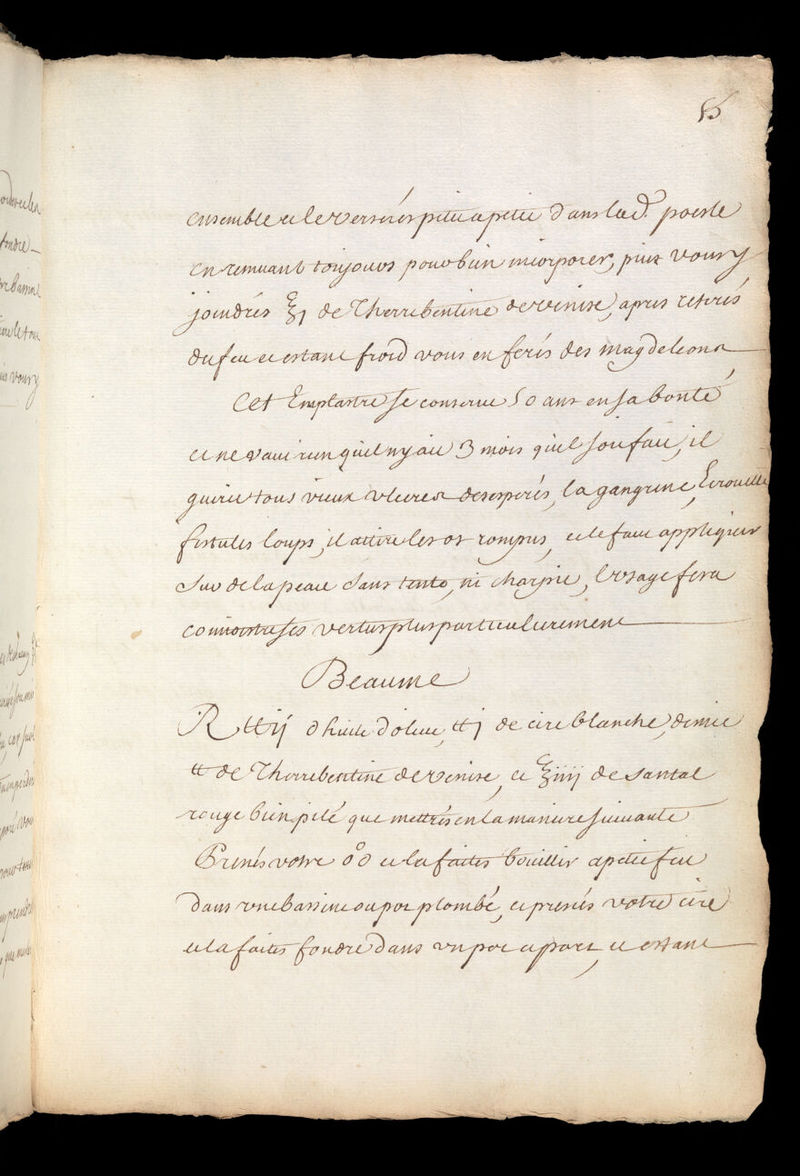 15
ensemble et le verserés petit a petit dans lad. poesle
en remuant toujours pour bien incorporer, puis vous y
joindrés ℥j de Therrebentine de venise, apres retirés
du feu et estant froid vous en ferés des magdeleons
Cet Emplastre se conserve 50 ans en sa bonté
et ne vaut rien qu'il n'y ait 3 mois qu'il soit fait, il
guerit tous vieux vlceres desesperés, la gangrene, Ecrouelle
fistules loups, il attire les os rompus, et le faut appliquer
sur de la peau sans tente, ni charpie, l'vsage fera
connoistre ses vertus plus particulierement
Beaume
R ℔ij d'huile d'olive, ℔j de cire blanche, demie
℔ de Therrebentine de venise, et ℥iiij de santal
rouge bien pilé que mettrés en la maniere suivante
Prenés votre oo et la faites bouillir a petit feu
dans vne bassine ou pot plombé, et prenés votre cire
et la faites fondre dans vn pot a part, et estant